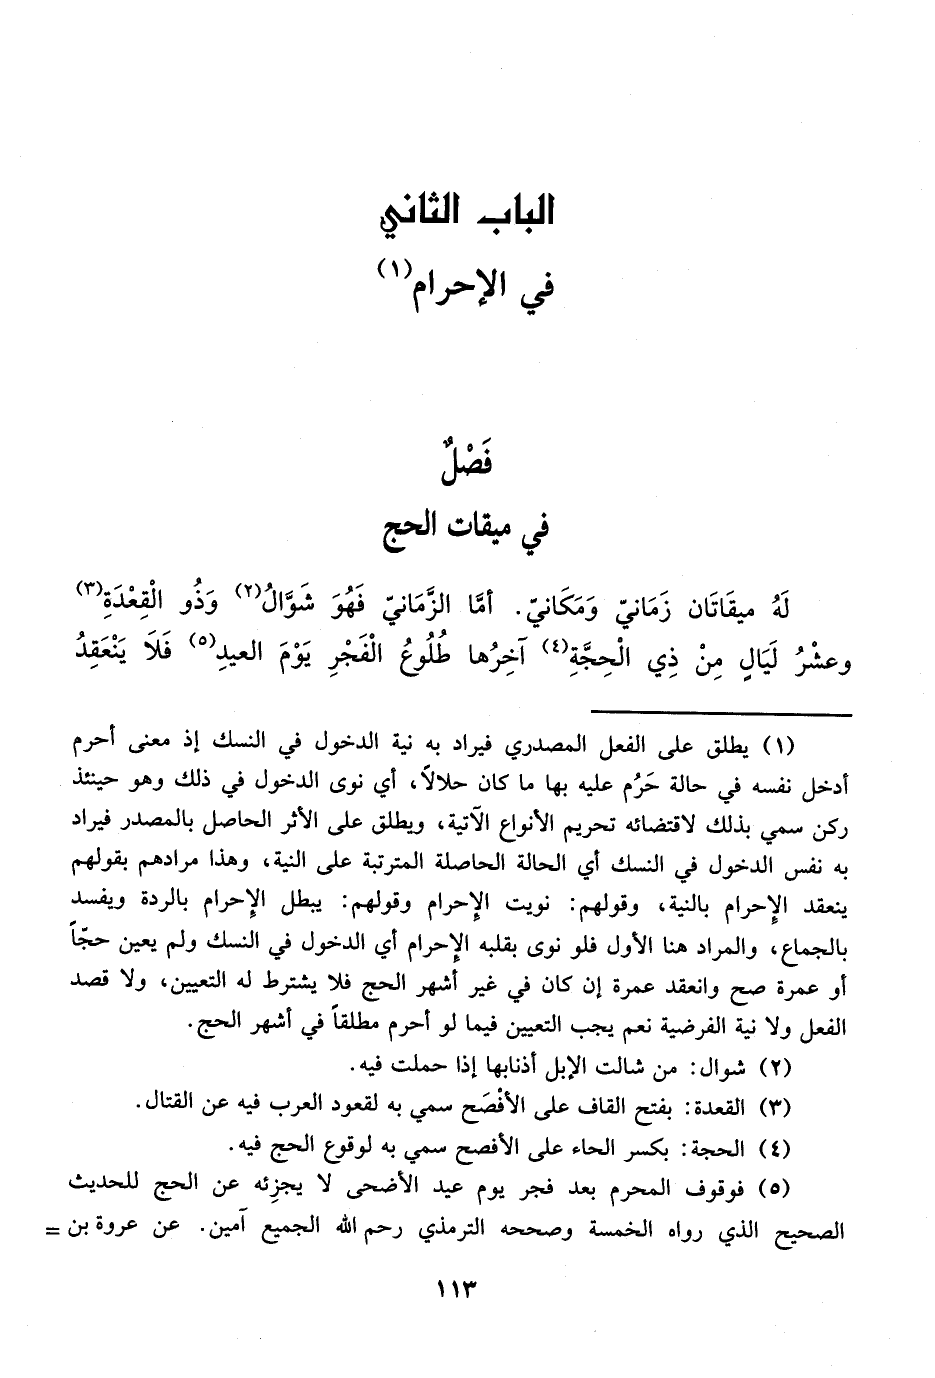 الباب الثاني
في الإحرام(١)
فَصْلٌ
في ميقات الحج
لَهُ ميقَاتَان زَمَانيّ وَمَكَانيّ. أمَّا الزَّمَانيّ فَهُوَ شَوَّالُ(٢) وَذُو الْقِعْدَةِ(٣)
وعشْرُ لَيَالٍ مِنْ ذِي الْحِجَّةِ(٤) آخِرُها طُلُوعُ الْفَجْرِ يَوْمَ العيدِ(٥) فَلَا يَنْعَقِدُ
(١) يطلق على الفعل المصدري فيراد به نية الدخول في النسك إذ معنى أحرم
أدخل نفسه في حالة حَرُم عليه بها ما كان حلالاً، أي نوى الدخول في ذلك وهو حينئذ
ركن سمي بذلك لاقتضائه تحريم الأنواع الآتية، ويطلق على الأثر الحاصل بالمصدر فيراد
به نفس الدخول في النسك أي الحالة الحاصلة المترتبة على النية، وهذا مرادهم بقولهم
ينعقد الإحرام بالنية، وقولهم: نويت الإحرام وقولهم: يبطل الإحرام بالردة ويفسد
بالجماع، والمراد هنا الأول فلو نوى بقلبه الإحرام أي الدخول في النسك ولم يعين حجّاً
أو عمرة صح وانعقد عمرة إن كان في غير أشهر الحج فلا يشترط له التعيين، ولا قصد
الفعل ولا نية الفرضية نعم يجب التعيين فيما لو أحرم مطلقاً في أشهر الحج.
(٢) شوال: من شالت الإبل أذنابها إذا حملت فيه.
(٣) القعدة: بفتح القاف على الأفْصَح سمي به لقعود العرب فيه عن القتال.
(٤) الحجة: بكسر الحاء على الأفصح سمي به لوقوع الحج فيه.
(٥) فوقوف المحرم بعد فجر يوم عيد الأضحى لا يجزِئه عن الحج للحديث
الصحيح الذي رواه الخمسة وصححه الترمذي رحم الله الجميع آمين. عن عروة بن =
١١٣